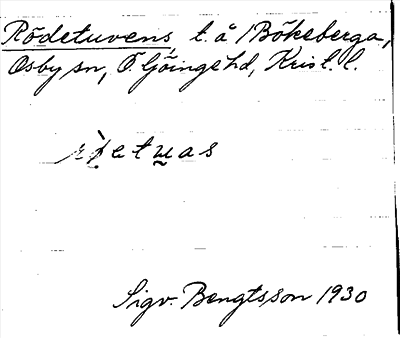 Rödetuvens, t. å Bökeberga,
Osby sn, Ö. Göinge hd, Krist. l.
Sigv. Bengtsson 1930